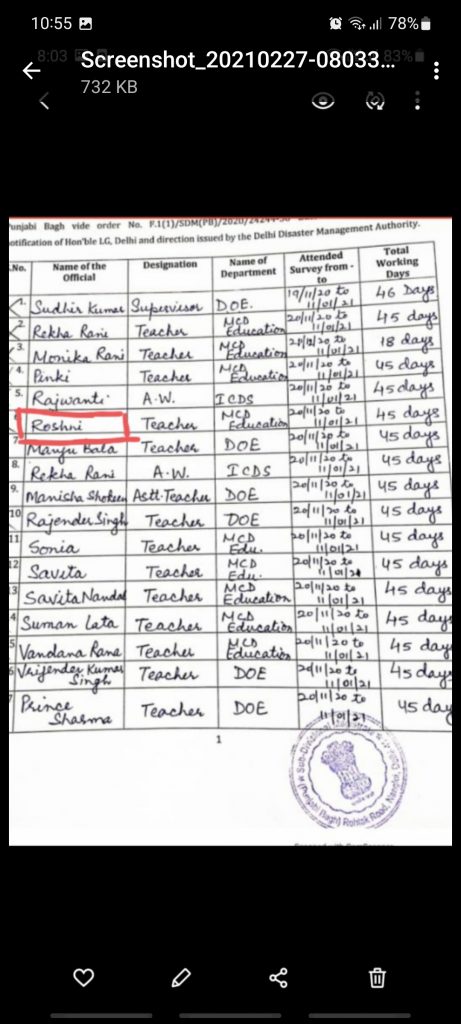 10:55 78%
8:03 83%
Screenshot_20210227-08033...
732 KB
Punjabi Bagh vide order No. F.1(1)/SDM(PB)/2020/
notification of Hon'ble LG, Delhi and direction issued by the Delhi Disaster Management Authority.
.No. Name of the Official Designation Name of Department Attended Survey from - to Total Working Days
1. Sudhir Kumar Supervisor DOE. 19/11/20 to 11/01/21 46 Days
2. Rekha Rani Teacher MCD Education 20/11/20 to 11/01/21 45 days
3. Monika Rani Teacher MCD Education to 11/01/21 18 days
4. Pinki Teacher MCD Education 20/11/20 to 11/01/21 45 days
5. Rajwanti. A.W. ICDS 20/11/20 to 11/01/21 45 days
6 Roshni Teacher MCD Education 20/11/20 to 11/01/21 45 days
7 Manju Bala Teacher DOE 20/11/20 to 11/01/21 45 days
8. Rekha Rani A.W. ICDS 20/11/20 to 11/01/21 45 days
9. Manisha Shokeen Astt. Teacher DOE 20/11/20 to 11/01/21 45 days
10 Rajender Singh Teacher DOE 20/11/20 to 11/01/21 45 days
11 Sonia Teacher MCD Edu. 20/11/20 to 11/01/21 45 days
12 Savita Teacher MCD Edu. 20/11/20 to 11/01/21 45 days
3 Savita Nandal Teacher MCD Education 20/11/20 to 11/01/21 45 days
4 Suman Lata Teacher MCD Education 20/11/20 to 11/01/21 45 days
5 Vandana Rana Teacher MCD Education 20/11/20 to 11/01/21 45 days
6 Vrijender Kumar Singh Teacher DOE 20/11/20 to 11/01/21 45 days
7 Prince Sharma Teacher DOE 20/11/20 to 11/01/21 45 day
1
Sub-Divisional Magistrate
(Punjabi Bagh) Rohtak Road, Nangloi,